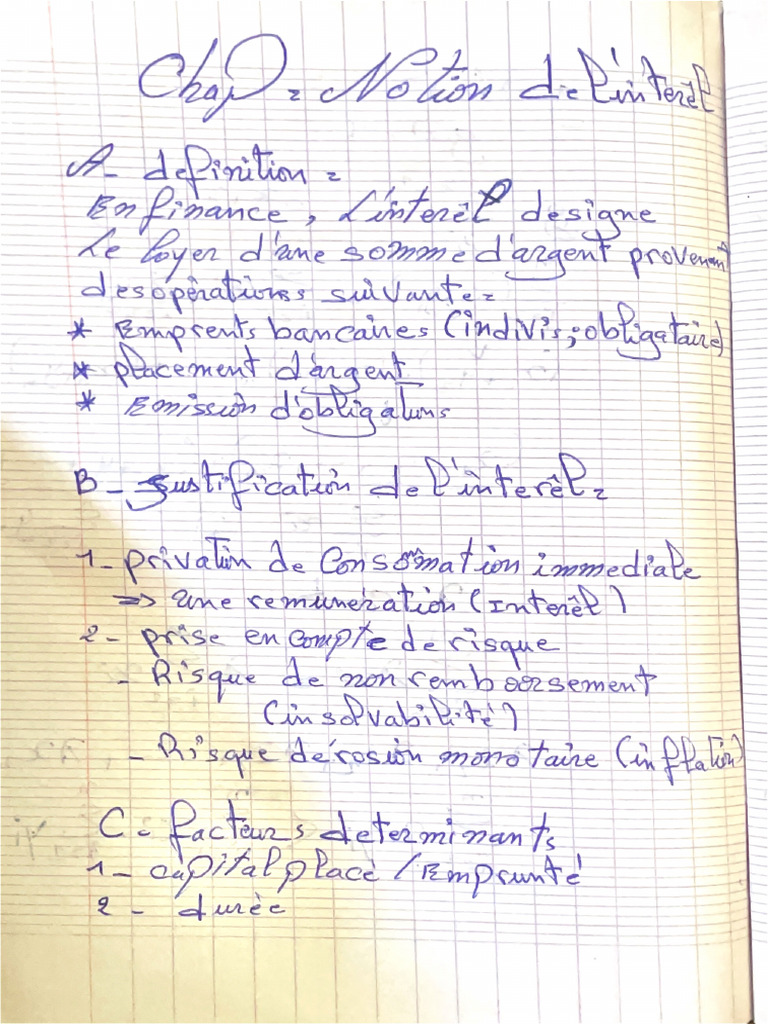 Chap : Notion de l'interêt
A- definition :
En finance, L'interêt designe
Le loyer d'une somme d'argent provenant
des opérations suivante :
* Emprents bancaires (indivis ; obligataire)
* placement d'argent
* Emission d'obligations
B - Justification de l'interêt :
1- privation de Consommation immediate
=> une remunération (Interêt)
2- prise en compte de risque
- Risque de non remboorsement
(insolvabilité)
- Risque d'érosion monotaire (inflation)
C - facteurs determinants
1- capital placé / Emprunté
2 - durée